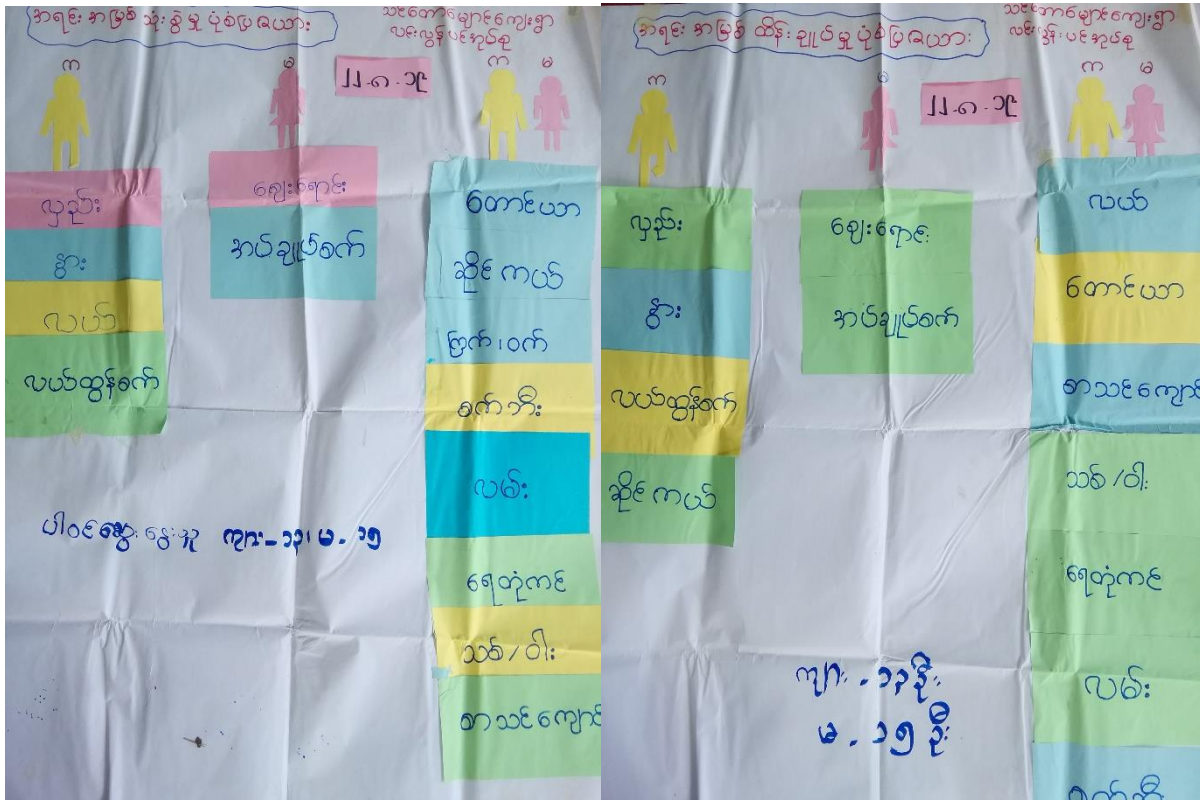 အရင်းအမြစ်သုံးစွဲမှု ပုံစံပြဇယား
သင်တောမျောင်ကျေးရွာ
လင်းလွန်းပင်အုပ်စု
က
မ
၂၂.၈.၁၉
က မ
လှည်း
နွား
လယ်
လယ်ထွန်စက်
ဈေးရောင်း
အပ်ချုပ်စက်
တောင်ယာ
ဆိုင်ကယ်
ကြက်၊ဝက်
စက်ဘီး
လမ်း
ရေတုံကင်
သစ်/ဝါး
စာသင်ကျောင်
ပါဝင်ဆွေးနွေးသူ ကျား-၁၃၊ မ-၁၅
အရင်းအမြစ် ထိန်းချုပ်မှု ပုံစံပြဇယား
သင်တောမျောင်ကျေးရွာ
လင်းလွန်းပင်အုပ်စု
က
မ
၂၂.၈.၁၉
က မ
လှည်း
နွား
လယ်ထွန်စက်
ဆိုင်ကယ်
ဈေးရောင်း
အပ်ချုပ်စက်
လယ်
တောင်ယာ
စာသင်ကျောင်
သစ်/ဝါး
ရေတုံကင်
လမ်း
စက်ဘီး
ကျား - ၁၃ ဦး
မ - ၁၅ ဦး